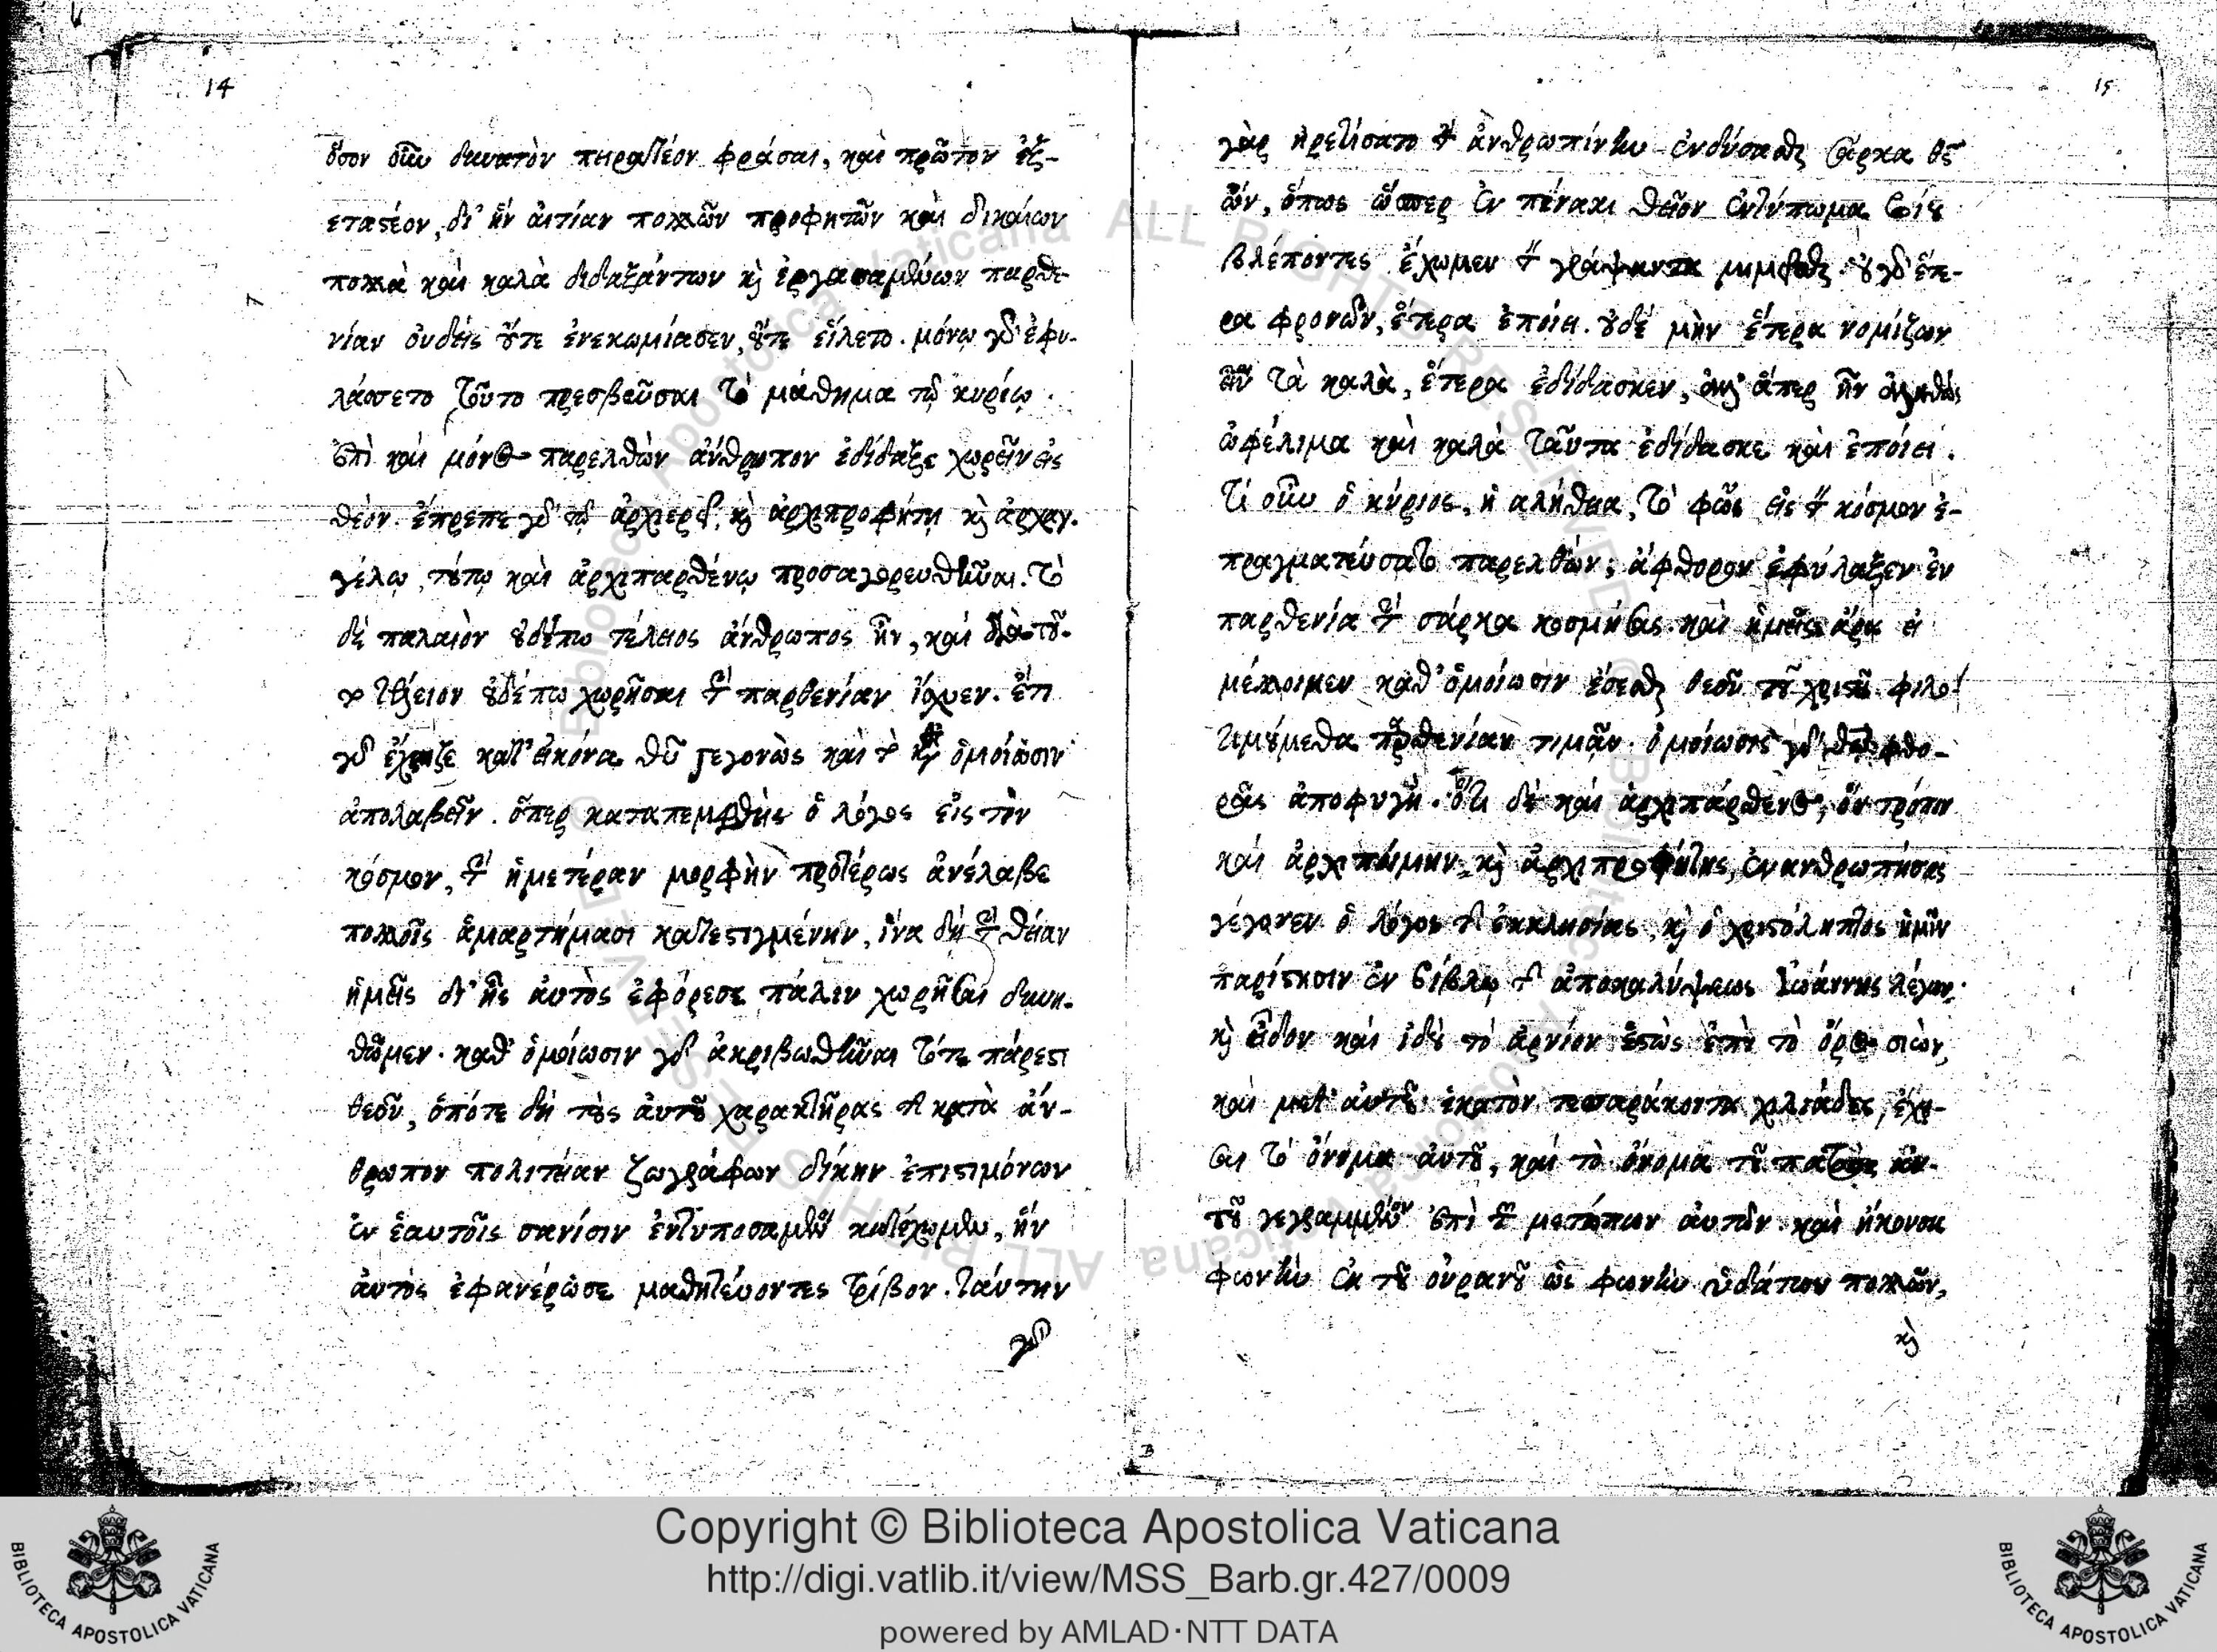 14
ὅσον οὖν δυνατὸν πειρατέον φράσαι, καὶ πρῶτον ἐξ-
εταστέον, δι' ἣν αἰτίαν πολλῶν προφητῶν καὶ δικαίων
πολλὰ καὶ καλὰ διδαξάντων κὶ ἐργασαμένων παρθε-
νίαν οὐδεὶς οὔτε ἐνεκωμίασεν, οὔτε εἵλετο. μόνῳ γὰρ ἐφυ-
λάσσετο τοῦτο πρεσβεῦσαι τὸ μάθημα τῷ κυρίῳ.
ἐπὶ καὶ μόνος παρελθὼν ἄνθρωπον ἐδίδαξε χωρεῖν εἰς
θεόν. ἔπρεπε γὰρ τῷ ἀρχιερεῖ, κὶ ἀρχιπροφήτῃ κὶ ἀρχαγ-
γέλῳ, τούτῳ καὶ ἀρχιπαρθένῳ προσαγορευθῆναι. τὸ
δὲ παλαιὸν οὐδέπω τέλειος ἄνθρωπος ἦν, καὶ διὰ τοῦ-
το τέλειον οὐδέπω χωρῆσαι τὴν παρθενίαν ἴσχυεν. ἔτι
γὰρ ἔχρηζε κατ' εἰκόνα θεοῦ γεγονὼς καὶ τὸ καθ' ὁμοίωσιν
ἀπολαβεῖν. ὅπερ καταπεμφθεὶς ὁ λόγος εἰς τὸν
κόσμον, τὴν ἡμετέραν μορφὴν προτέρως ἀνέλαβε
πολλοῖς ἁμαρτήμασι κατεστιγμένην, ἵνα δὴ τὴν θείαν
ἡμεῖς δι' ἧς αὐτὸς ἐφόρεσε πάλιν χωρῆσαι δυνη-
θῶμεν. καθ' ὁμοίωσιν γὰρ ἀκριβωθῆναι τότε πάρεστι
θεοῦ, ὁπότε δὴ τοὺς αὐτοῦ χαρακτῆρας τῆς κατὰ ἄν-
θρωπον πολιτείαν ζωγράφων δίκην ἐπιστημόνων
ἐν ἑαυτοῖς σανίσιν ἐντυποσαμένου κατέχωμεν, ἣν
αὐτὸς ἐφανέρωσε μαθητεύοντες τρίβον. ταύτην
γὰρ
15
γὰρ ᾑρετίσατο τὴν ἀνθρωπίνην ἐνδύσασθαι σάρκα θεὸς
ὢν, ὅπως ὥσπερ ἐν πίνακι θεῖον ἐκτύπωμα βίου
βλέποντες ἔχωμεν τὸν γράψαντα μιμεῖσθαι. οὐ γὰρ ἕτε-
ρα φρονῶν, ἕτερα ἐποίει. οὐδὲ μὴν ἕτερα νομίζων
εἶναι τὰ καλὰ, ἕτερα ἐδίδασκεν, ἀλλ' ἅπερ ἦν ἀληθῶς
ὠφέλιμα καὶ καλὰ ταῦτα ἐδίδασκε καὶ ἐποίει.
τί οὖν ὁ κύριος, ἡ αλήθεια, τὸ φῶς εἰς τὸν κόσμον ἐ-
πραγματεύσατο παρελθών; ἄφθορον ἐφύλαξεν ἐν
παρθενία τὴν σάρκα κοσμήσας. καὶ ἡμεῖς ἄρα εἰ
μέλλοιμεν καθ' ὁμοίωσιν ἔσεσθαι θεοῦ τοῦ χριστοῦ φιλο-
τιμούμεθα παρθενίαν τιμᾶν. ὁμοίωσις γὰρ θεῷ φθο-
ρᾶς ἀποφυγή. ὅτι δὲ καὶ ἀρχιπάρθενος, ὃν τρόπον
καὶ ἀρχιποίμην κὶ ἀρχιπροφήτης, ἐνανθρωπήσας
γέγονεν ὁ λόγος τῆς ἐκκλησίας, κὶ ὁ χριστόληπτος ἡμῖν
παρίστησιν ἐν βίβλῳ τῆς ἀποκαλύψεως Ἰωάννης λέγων.
κὶ εἶδον καὶ ἰδοὺ τὸ ἀρνίον ἑστὼς ἐπὶ τὸ ὄρος σιὼν,
καὶ μετ' αὐτοῦ ἑκατὸν τεσσαράκοντα χιλιάδες, ἔχου-
σαι τὸ ὄνομα αὐτοῦ, καὶ τὸ ὄνομα τοῦ πατρὸς αὐ-
τοῦ γεγραμμένον ἐπὶ τῶν μετώπων αὐτῶν. καὶ ἤκουσα
φωνὴν ἐκ τοῦ οὐρανοῦ ὡς φωνὴν ὑδάτων πολλῶν,
κὶ
Copyright © Biblioteca Apostolica Vaticana
http://digi.vatlib.it/view/MSS_Barb.gr.427/0009
powered by AMLAD·NTT DATA
BIBLIOTECA APOSTOLICA VATICANA
BIBLIOTECA APOSTOLICA VATICANA